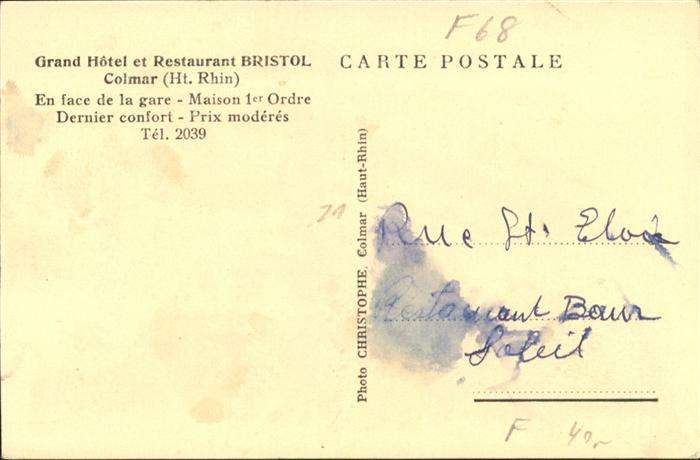 F68
Grand Hôtel et Restaurant BRISTOL
Colmar (Ht. Rhin)
En face de la gare - Maison 1er Ordre
Dernier confort - Prix modérés
Tél. 2039
CARTE POSTALE
Photo CHRISTOPHE, Colmar (Haut-Rhin)
Rue St. Eloi
Restaurant
Soleil
F